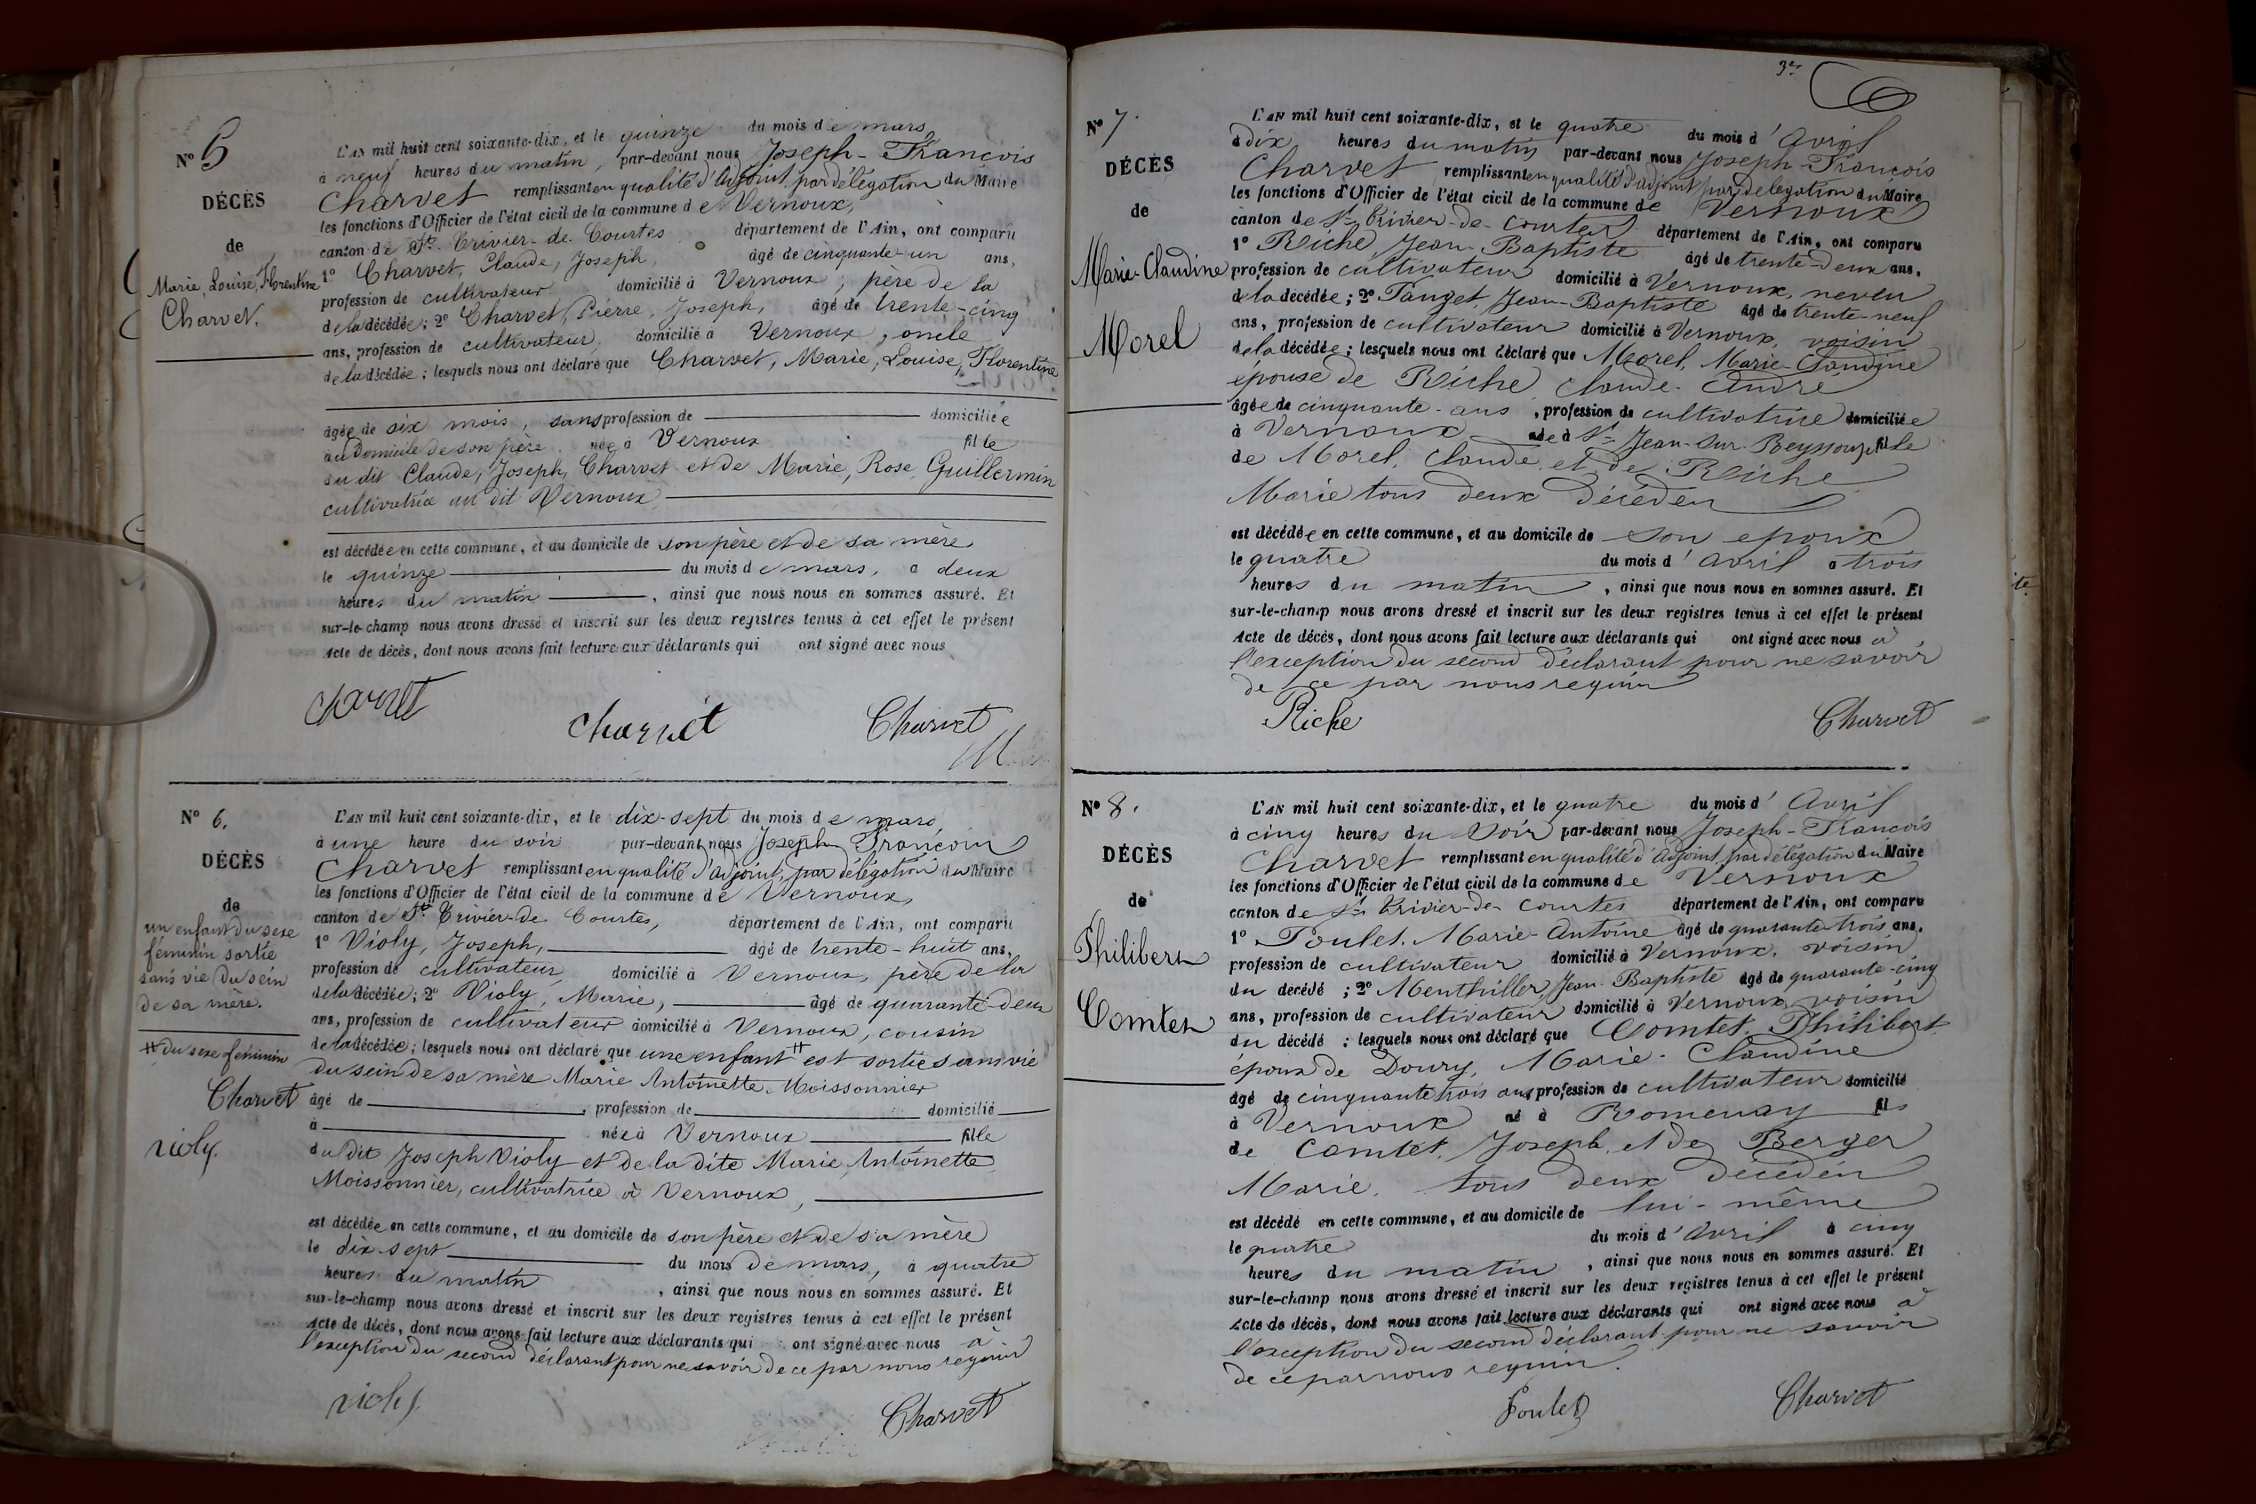 N° 5
DÉCÈS
de
Marie, Louise, Florentine
Charvet.
L'AN mil huit cent soixante-dix, et le quinze du mois de mars
à neuf heures du matin, par-devant nous Joseph-François
Charvet remplissant en qualité d'adjoint, par délégation du Maire
les fonctions d'Officier de l'état civil de la commune de Vernoux,
canton de St. Trivier-de-Courtes département de l'Ain, ont comparu
1° Charvet, Claude, Joseph, âgé de cinquante-un ans,
profession de cultivateur domicilié à Vernoux, père de la
de la décédée; 2° Charvet, Pierre, Joseph, âgé de trente-cinq
ans, profession de cultivateur, domicilié à Vernoux, oncle
de la décédée; lesquels nous ont déclaré que Charvet, Marie, Louise, Florentine
âgée de six mois, sans profession de domiciliée
au domicile de son père née à Vernoux fille
du dit Claude, Joseph, Charvet et de Marie, Rose Guillermin
cultivatrice au dit Vernoux
est décédée en cette commune, et au domicile de son père et de sa mère
le quinze du mois de mars, à deux
heures du matin, ainsi que nous nous en sommes assuré. Et
sur-le-champ nous avons dressé et inscrit sur les deux registres tenus à cet effet le présent
Acte de décès, dont nous avons fait lecture aux déclarants qui ont signé avec nous
Charvet
Charvet
Charvet
N° 6.
DÉCÈS
de
un enfant du sexe
féminin sortie
sans vie du sein
de sa mère.
# du sexe féminin
Charvet
violy.
L'AN mil huit cent soixante-dix, et le dix-sept du mois de mars,
à une heure du soir par-devant nous Joseph François
Charvet remplissant en qualité d'adjoint, par délégation du Maire
les fonctions d'Officier de l'état civil de la commune de Vernoux
canton de St. Trivier-de-Courtes, département de l'Ain, ont comparu
1° Violy, Joseph, âgé de trente-huit ans,
profession de cultivateur domicilié à Vernoux, père de la
de la décédée; 2° Violy, Marie, âgé de quarante-deux
ans, profession de cultivateur domicilié à Vernoux, cousin
de la décédée; lesquels nous ont déclaré que une enfant # est sortie sans vie
du sein de sa mère Marie Antoinette Moissonnier
âgé de , profession de domicilié
à née à Vernoux fille
du dit Joseph Violy et de la dite Marie Antoinette
Moissonnier, cultivatrice à Vernoux,
est décédée en cette commune, et au domicile de son père et de sa mère
le dix-sept du mois de mars, à quatre
heures du matin, ainsi que nous nous en sommes assuré. Et
sur-le-champ nous avons dressé et inscrit sur les deux registres tenus à cet effet le présent
Acte de décès, dont nous avons fait lecture aux déclarants qui ont signé avec nous à
l'exception du second déclarant pour ne savoir de ce par nous requis
violy
Charvet
N° 7.
DÉCÈS
de
Marie-Claudine
Morel
L'AN mil huit cent soixante-dix, et le quatre du mois d'Avril
à dix heures du matin par-devant nous Joseph-François
Charvet remplissant en qualité d'adjoint par délégation du Maire
les fonctions d'Officier de l'état civil de la commune de Vernoux
canton de St Trivier-de-Courtes département de l'Ain, ont comparu
1° Riche, Jean-Baptiste âgé de trente-deux ans,
profession de cultivateur domicilié à Vernoux, neveu
de la décédée; 2° Pauget, Jean-Baptiste âgé de trente-neuf
ans, profession de cultivateur domicilié à Vernoux, voisin
de la décédée; lesquels nous ont déclaré que Morel, Marie-Claudine
épouse de Riche Claude-André
âgée de cinquante-ans, profession de cultivatrice domiciliée
à Vernoux née à St Jean-sur-Reyssouze fille
de Morel, Claude et de Riche
Marie tous deux décédés
est décédée en cette commune, et au domicile de son époux
le quatre du mois d'avril à trois
heures du matin, ainsi que nous nous en sommes assuré. Et
sur-le-champ nous avons dressé et inscrit sur les deux registres tenus à cet effet le présent
Acte de décès, dont nous avons fait lecture aux déclarants qui ont signé avec nous à
l'exception du second déclarant pour ne savoir
de ce par nous requis
Riche
Charvet
N° 8.
DÉCÈS
de
Philibert
Comtet
L'AN mil huit cent soixante-dix, et le quatre du mois d'Avril
à cinq heures du soir par-devant nous Joseph-François
Charvet remplissant en qualité d'adjoint par délégation du Maire
les fonctions d'Officier de l'état civil de la commune de Vernoux
canton de St Trivier-de-Courtes département de l'Ain, ont comparu
1° Poulet, Marie-Antoine âgé de quarante-trois ans,
profession de cultivateur domicilié à Vernoux, voisin
du décédé; 2° Menthiller, Jean-Baptiste âgé de quarante-cinq
ans, profession de cultivateur domicilié à Vernoux voisin
du décédé; lesquels nous ont déclaré que Comtet, Philibert
époux de Doury, Marie-Claudine
âgé de cinquante trois ans profession de cultivateur domicilié
à Vernoux né à Romenay fils
de Comtet, Joseph et de Berger
Marie. tous deux décédés
est décédé en cette commune, et au domicile de lui-même
le quatre du mois d'avril à cinq
heures du matin, ainsi que nous nous en sommes assuré. Et
sur-le-champ nous avons dressé et inscrit sur les deux registres tenus à cet effet le présent
Acte de décès, dont nous avons fait lecture aux déclarants qui ont signé avec nous à
l'exception du second déclarant pour ne savoir
de ce par nous requis.
Poulet
Charvet